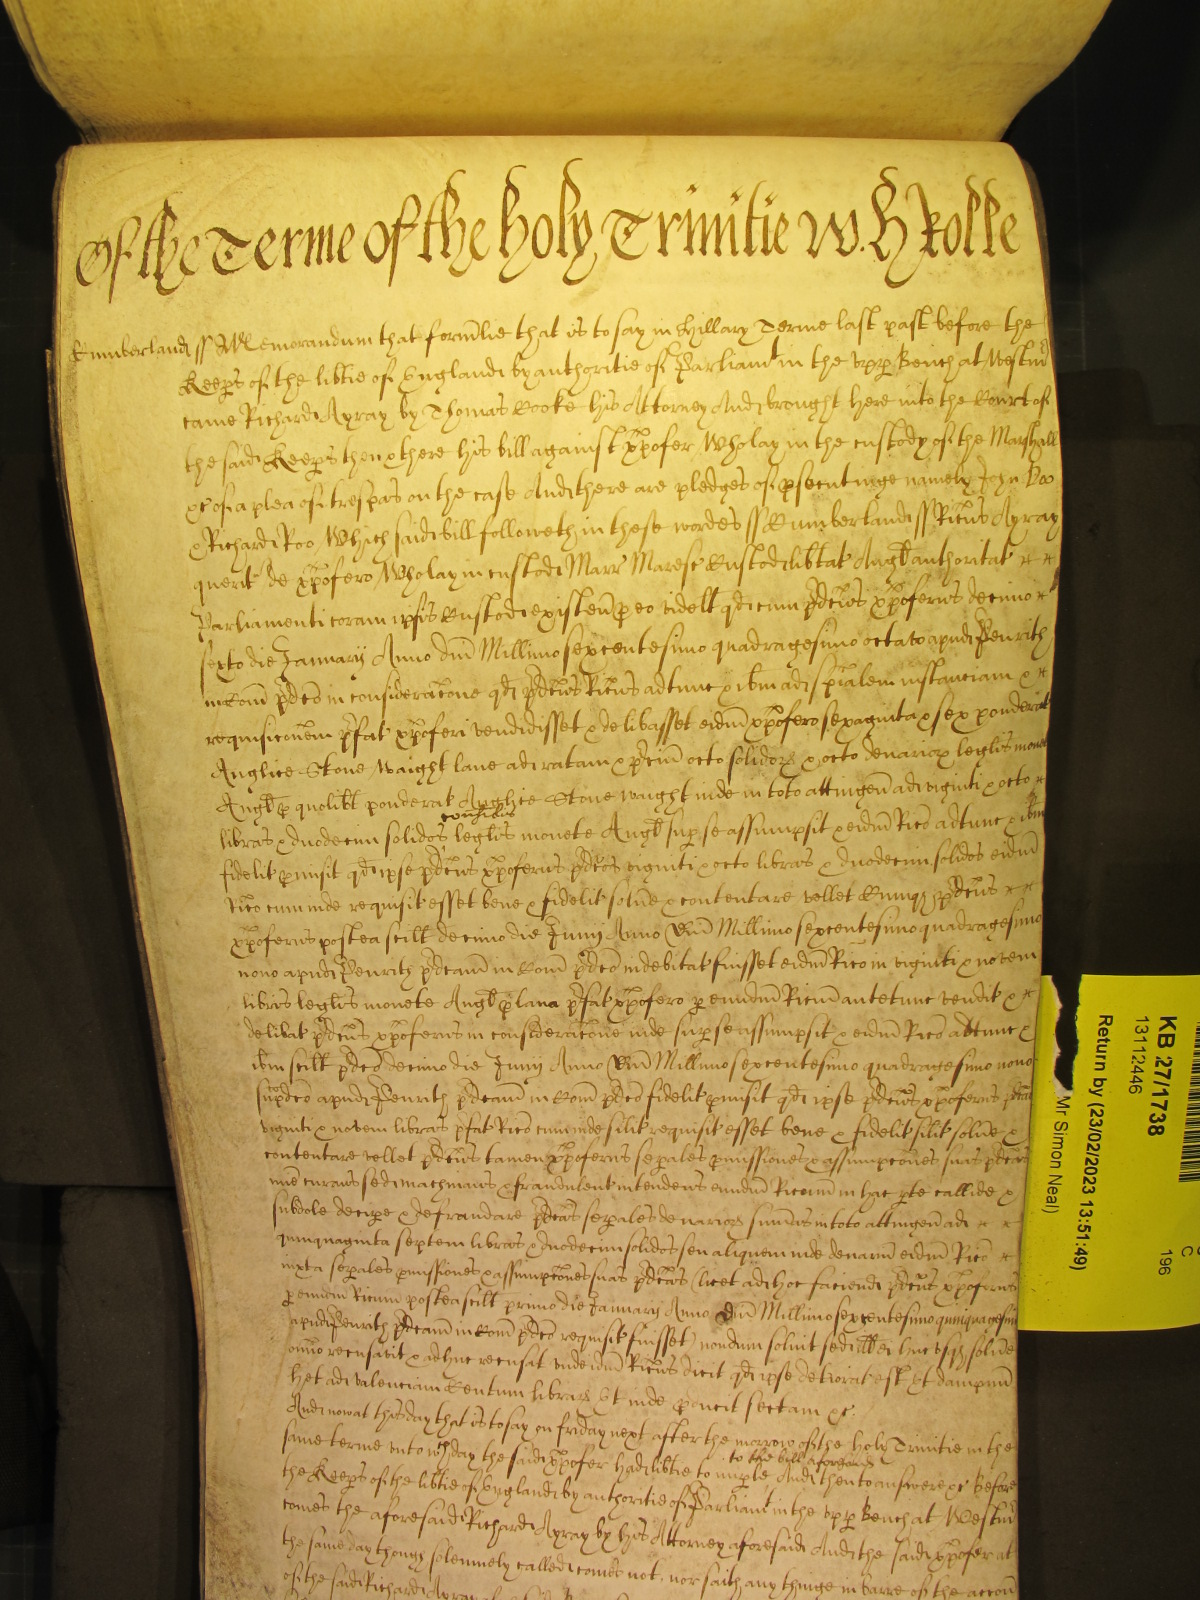 Of the Terme of the holy Trinitie W. H Rolle
Cumberland ss Memorandum that form̄lie that is to say in Hillary Terme last past before the
Keep̄s of the lib̄tie of England by authoritie of Parliam̄t in the vpp̄ Bench at Westm̄
came Richard Ayray by Thomas Cooke his Attorney And brought here into the Court of
the said Keep̄s then & there his bill against Xp̄ofer Wholay in the custody of the Marshall
&c of a plea of trespas on the case And there are pledges of p̱secutinge namely John Doo
& Richard Roo Which said bill followeth in these wordes ss Cumberland ss Ric̄us Ayray
querit̄ de Xp̄ofero Wholay in custod Marr̄ Maresc̄ Custod lib̄tat̄ Angl̄ authoritat̄
Parliamenti coram ip̄is Custod existen̄ p̱ eo videlt̄ qd cum p̄dc̄us Xp̄oferus decimo
sexto die Januarij Anno dn̄i Millimo sexcentesimo quadragesimo octavo apud Penrith
in Com̄ p̄dc̄o in considerac̄one qd p̄dc̄us Ric̄us adtunc & ib̄m ad sp̄ialem instanciam &
requisic̄onem p̄fat̄ Xp̄oferi vendidisset & delib̄asset eid̄m Xp̄ofero sexaginta & sex ponderat̄
Anglice Stone Waight lane ad ratam & p̄cium̄ octo solidoꝝ & octo denarioꝝ leglīs monet̄
Angl̄ p̱ quolib̄t ponderat̄ Anglice Stone waight inde in toto attingen̄ ad viginti & octo
libras & duodecim solidos leglīs monete Angl̄ sup̱ se assumpsit & eid̄m Ric̄o adtunc & ib̄m
fidelit̄ p̱misit qd ipse p̄dc̄us Xp̄oferus p̄dc̄as viginti & octo libras & duodecim solidos eid̄m
Ric̄o cum inde requisit̄ esset bene & fidelit̄ solu̱e & contentare vellet Cumqꝫ p̄dc̄us
Xp̄oferus postea scilt̄ decimo die Junij Anno Dn̄i Millimo sexcentesimo quadragesimo
nono apud Penrith p̄dc̄am in Com̄ p̄dc̄o indebitat̄ fuisset eid̄m Ric̄o in viginti & novem
libris leglīs monete Angl̄ p̱ lana p̄fat̄ Xp̄ofero p̱ eund̄m Ric̄um antetunc vendit̄ &
delib̄at̄ p̄dc̄us Xp̄oferus in considerac̄one inde sup̱ se assumpsit & eid̄m Ric̄o adtunc &
ib̄m scilt̄ p̄dc̄o decimo die Junij Anno Dn̄i Millimo sexcentesimo quadragesimo nono
sup̄dc̄o apud Penrith p̄dc̄am in Com̄ p̄dc̄o fidelit̄ p̱misit qd ipse p̄dc̄us Xp̄oferus p̄dc̄as
viginti & novem libras p̄fat̄ Ric̄o cum inde silit̄ requisit̄ esset bene & fidelit̄ silit̄ solu̱e &
contentare vellet p̄dc̄us tamen Xp̄oferus sep̱ales p̱missiones & assumpc̄ones suas p̄dc̄as
min̄e curans sed machinans & fraudulent̄ intendens eund̄m Ric̄um in hac p̱te callide &
subdole decip̱e & defraudare p̄dc̄as sep̱ales denarioꝝ sum̄as in toto attingen̄ ad
quinquaginta septem libras & duodecim solidos seu aliquem inde denar̄ eid̄m Ric̄o
iuxta sep̱ales p̱missiones & assumpc̄ones suas p̄dc̄as (licet ad hoc faciend p̄dc̄us Xp̄oferus
p̱ eund̄m Ric̄um postea scilt̄ primo die Januarij Anno Dn̄i Millimo sexcentesimo quinquagesimo
apud Penrith p̄dc̄am in Com̄ p̄dc̄o requisit̄ fuisset) nondum soluit sed ill̄ ei huc vsqꝫ solu̱e
om̄io recusavit & adhuc recusat vnde id̄m Ric̄us dicit qd ipse deteriorat̄ est & dampnū
h̄et ad valenciam Centum librar̄ Et inde p̱ducit sectam &c
And now at this day that is to say on friday next after the morrow of the Holy Trinitie in the
same terme vnto wch day the said Xp̄ofer had lib̄tie to imple to the bill aforesaid And then to answere &c Before
the Keep̄s of the lib̄tie of England by authoritie of Parliam̄t in the vpp̄ Bench at Westm̄
comes the aforesaid Richard Ayray by his Attorney aforesaid And the said Xp̄ofer at
the same day though solemnely called comes not nor saith any thinge in barre of the accōn
of the said Richard Ayray
KB 27/1738
13112446
Return by (23/02/2023 13:51:49)
Mr Simon Neal)
C
196